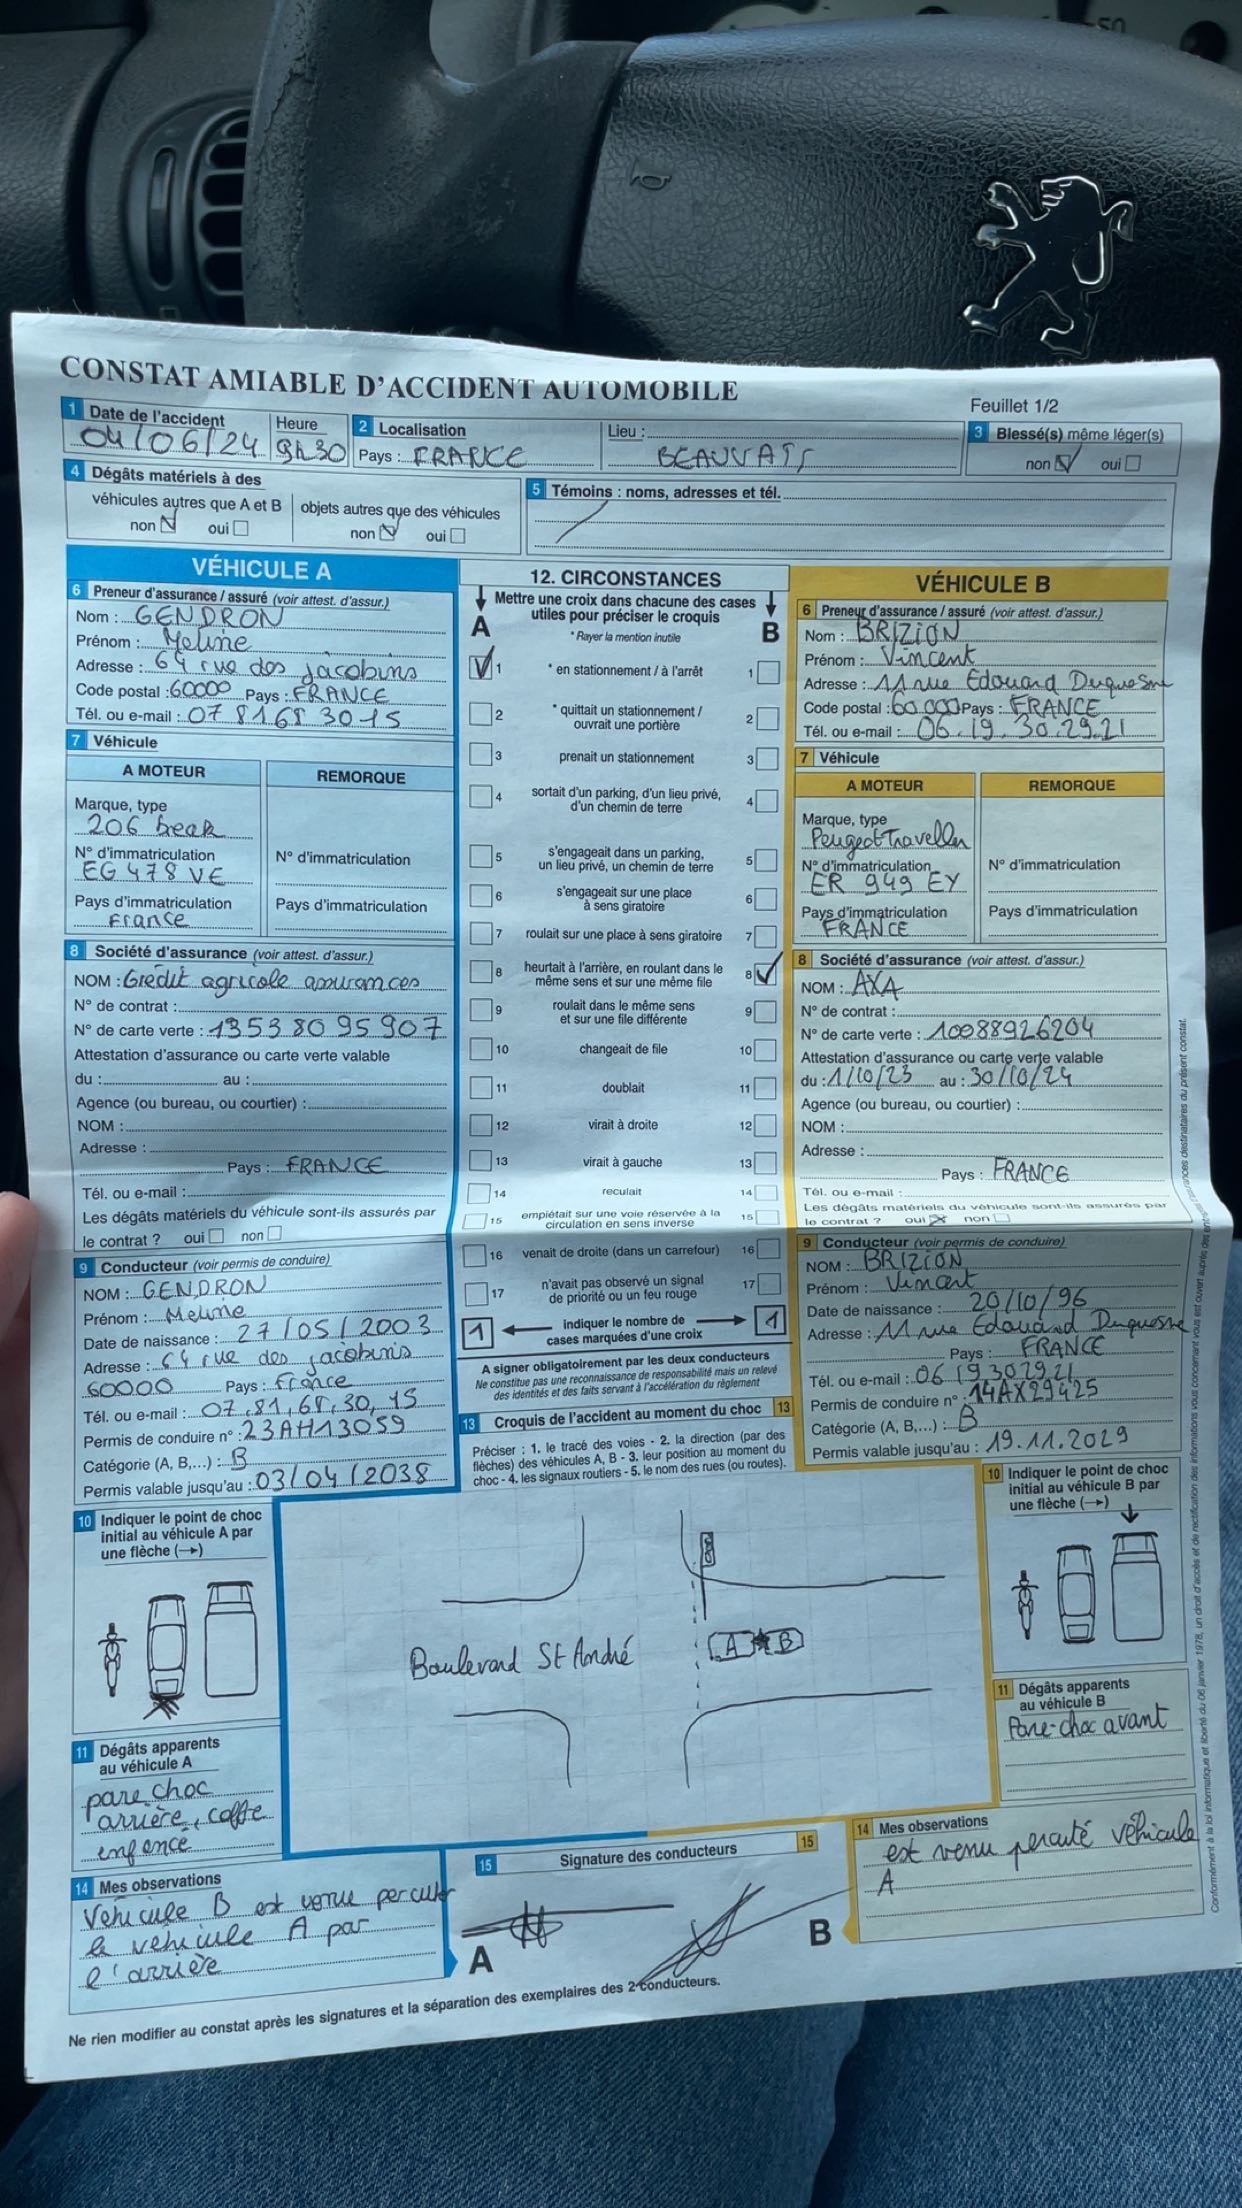 50
CONSTAT AMIABLE D'ACCIDENT AUTOMOBILE
Feuillet 1/2
1 Date de l'accident
04/06/24
Heure
9h30
2 Localisation
Pays : FRANCE
Lieu :
BEAUVAIS
3 Blessé(s) même léger(s)
non oui
4 Dégâts matériels à des
véhicules autres que A et B
non oui
objets autres que des véhicules
non oui
5 Témoins : noms, adresses et tél.
VÉHICULE A
6 Preneur d'assurance / assuré (voir attest. d'assur.)
Nom : GENDRON
Prénom : Meline
Adresse : 64 rue des jacobins
Code postal : 60000 Pays : FRANCE
Tél. ou e-mail : 07 81 68 30 15
7 Véhicule
A MOTEUR
REMORQUE
Marque, type
206 break
N° d'immatriculation
EG 478 VE
N° d'immatriculation
Pays d'immatriculation
France
Pays d'immatriculation
8 Société d'assurance (voir attest. d'assur.)
NOM : Crédit agricole assurances
N° de contrat :
N° de carte verte : 1353 80 95 907
Attestation d'assurance ou carte verte valable
du : au :
Agence (ou bureau, ou courtier) :
NOM :
Adresse :
Pays : FRANCE
Tél. ou e-mail :
Les dégâts matériels du véhicule sont-ils assurés par
le contrat ? oui non
9 Conducteur (voir permis de conduire)
NOM : GENDRON
Prénom : Meline
Date de naissance : 27/05/2003
Adresse : 64 rue des jacobins
60000 Pays : France
Tél. ou e-mail : 07.81.68.30.15
Permis de conduire n° : 23AH13059
Catégorie (A, B,...) : B
Permis valable jusqu'au : 03/04/2038
10 Indiquer le point de choc
initial au véhicule A par
une flèche (→)
11 Dégâts apparents
au véhicule A
pare choc
arrière, coffre
enfoncé
14 Mes observations
Vehicule B est venue percuter
le vehicule A par
l'arrière
12. CIRCONSTANCES
Mettre une croix dans chacune des cases
utiles pour préciser le croquis
A B
* Rayer la mention inutile
1 * en stationnement / à l'arrêt 1
2 * quittait un stationnement / 2
ouvrait une portière
3 prenait un stationnement 3
4 sortait d'un parking, d'un lieu privé, 4
d'un chemin de terre
5 s'engageait dans un parking, 5
un lieu privé, un chemin de terre
6 s'engageait sur une place 6
à sens giratoire
7 roulait sur une place à sens giratoire 7
8 heurtait à l'arrière, en roulant dans le 8
même sens et sur une même file
9 roulait dans le même sens 9
et sur une file différente
10 changeait de file 10
11 doublait 11
12 virait à droite 12
13 virait à gauche 13
14 reculait 14
15 empiétait sur une voie réservée à la 15
circulation en sens inverse
16 venait de droite (dans un carrefour) 16
17 n'avait pas observé un signal 17
de priorité ou un feu rouge
1 indiquer le nombre de 1
cases marquées d'une croix
A signer obligatoirement par les deux conducteurs
Ne constitue pas une reconnaissance de responsabilité mais un relevé
des identités et des faits servant à l'accélération du règlement
13 Croquis de l'accident au moment du choc 13
Préciser : 1. le tracé des voies - 2. la direction (par des
flèches) des véhicules A, B - 3. leur position au moment du
choc - 4. les signaux routiers - 5. le nom des rues (ou routes).
Boulevard St André
A B
15 Signature des conducteurs 15
A B
VÉHICULE B
6 Preneur d'assurance / assuré (voir attest. d'assur.)
Nom : BRIZION
Prénom : Vincent
Adresse : 11 rue Edouard Duquesne
Code postal : 60.000 Pays : FRANCE
Tél. ou e-mail : 06.19.30.29.21
7 Véhicule
A MOTEUR
REMORQUE
Marque, type
Peugeot Traveller
N° d'immatriculation
ER 949 EY
N° d'immatriculation
Pays d'immatriculation
FRANCE
Pays d'immatriculation
8 Société d'assurance (voir attest. d'assur.)
NOM : AXA
N° de contrat :
N° de carte verte : 10088926204
Attestation d'assurance ou carte verte valable
du : 1/10/23 au : 30/10/24
Agence (ou bureau, ou courtier) :
NOM :
Adresse :
Pays : FRANCE
Tél. ou e-mail :
Les dégâts matériels du véhicule sont-ils assurés par
le contrat ? oui non
9 Conducteur (voir permis de conduire)
NOM : BRIZION
Prénom : Vincent
Date de naissance : 20/10/96
Adresse : 11 rue Edouard Duquesne
Pays : FRANCE
Tél. ou e-mail : 06 19302921
Permis de conduire n° : 14AX29425
Catégorie (A, B,...) : B
Permis valable jusqu'au : 19.11.2029
10 Indiquer le point de choc
initial au véhicule B par
une flèche (→)
11 Dégâts apparents
au véhicule B
Pare-choc avant
14 Mes observations
est venu percuté véhicule
A
Ne rien modifier au constat après les signatures et la séparation des exemplaires des 2 conducteurs.